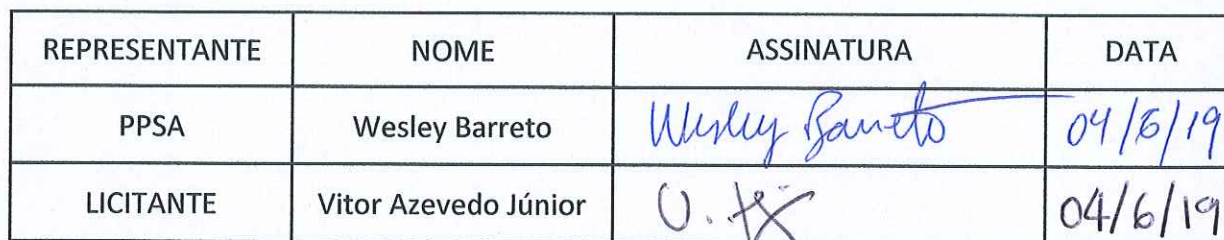 REPRESENTANTE NOME ASSINATURA DATA
PPSA Wesley Barreto Wesley Barreto 04/6/19
LICITANTE Vitor Azevedo Júnior 04/6/19